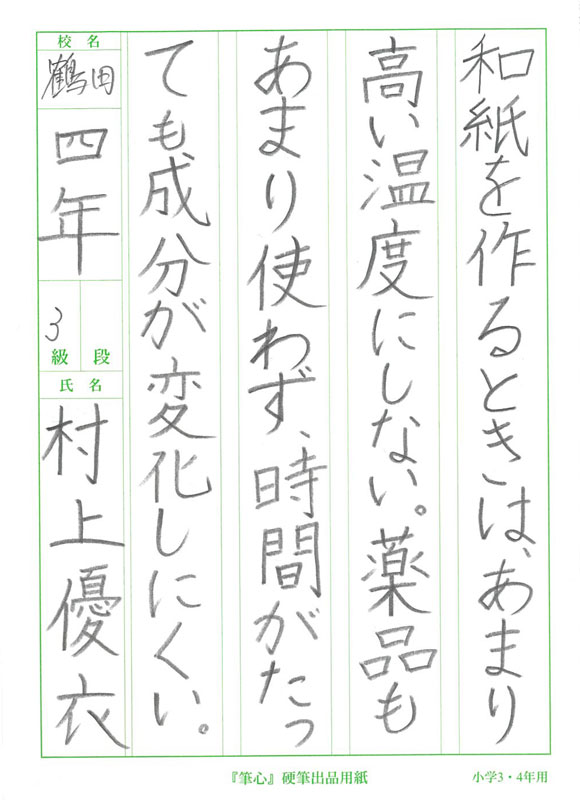 和紙を作るときは、あまり
高い温度にしない。薬品も
あまり使わず、時間がたっ
ても成分が変化しにくい。
校名
鶴田
四年
3
級 段
氏名
村上優衣
『筆心』硬筆出品用紙
小学3・4年用